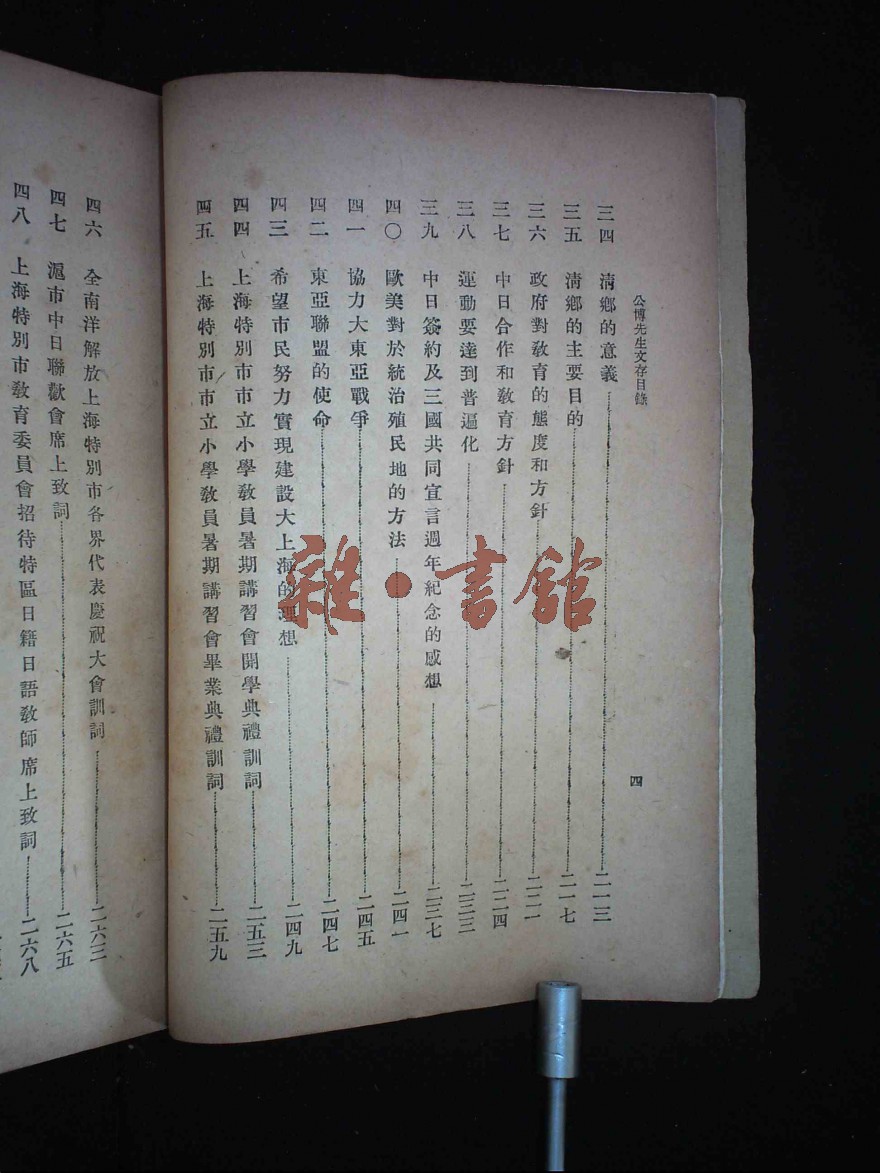 公博先生文存目錄
四
三四 清鄉的意義 二一三
三五 清鄉的主要目的 二一七
三六 政府對敎育的態度和方針 二二一
三七 中日合作和敎育方針 二二四
三八 運動要達到普遍化 二三三
三九 中日簽約及三國共同宣言週年紀念的感想 二三七
四〇 歐美對於統治殖民地的方法 二四一
四一 協力大東亞戰爭 二四五
四二 東亞聯盟的使命 二四七
四三 希望市民努力實現建設大上海的理想 二四九
四四 上海特別市市立小學敎員暑期講習會開學典禮訓詞 二五三
四五 上海特別市市立小學敎員暑期講習會畢業典禮訓詞 二五九
四六 全南洋解放上海特別市各界代表慶祝大會訓詞 二六三
四七 滬市中日聯歡會席上致詞 二六五
四八 上海特別市敎育委員會招待特區日籍日語敎師席上致詞 二六八
雜·書館